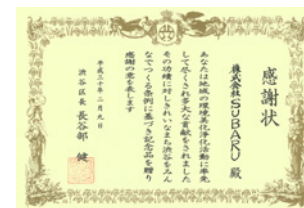 感謝状
株式会社SUBARU 殿
あなたは地域の環境美化浄化活動に率先
して尽くされ多大な貢献をされました
その功績に対しきれいなまち渋谷をみん
なでつくる条例に基づき記念品を贈り
感謝の意を表します
平成三十年二月九日
渋谷区長 長谷部 健